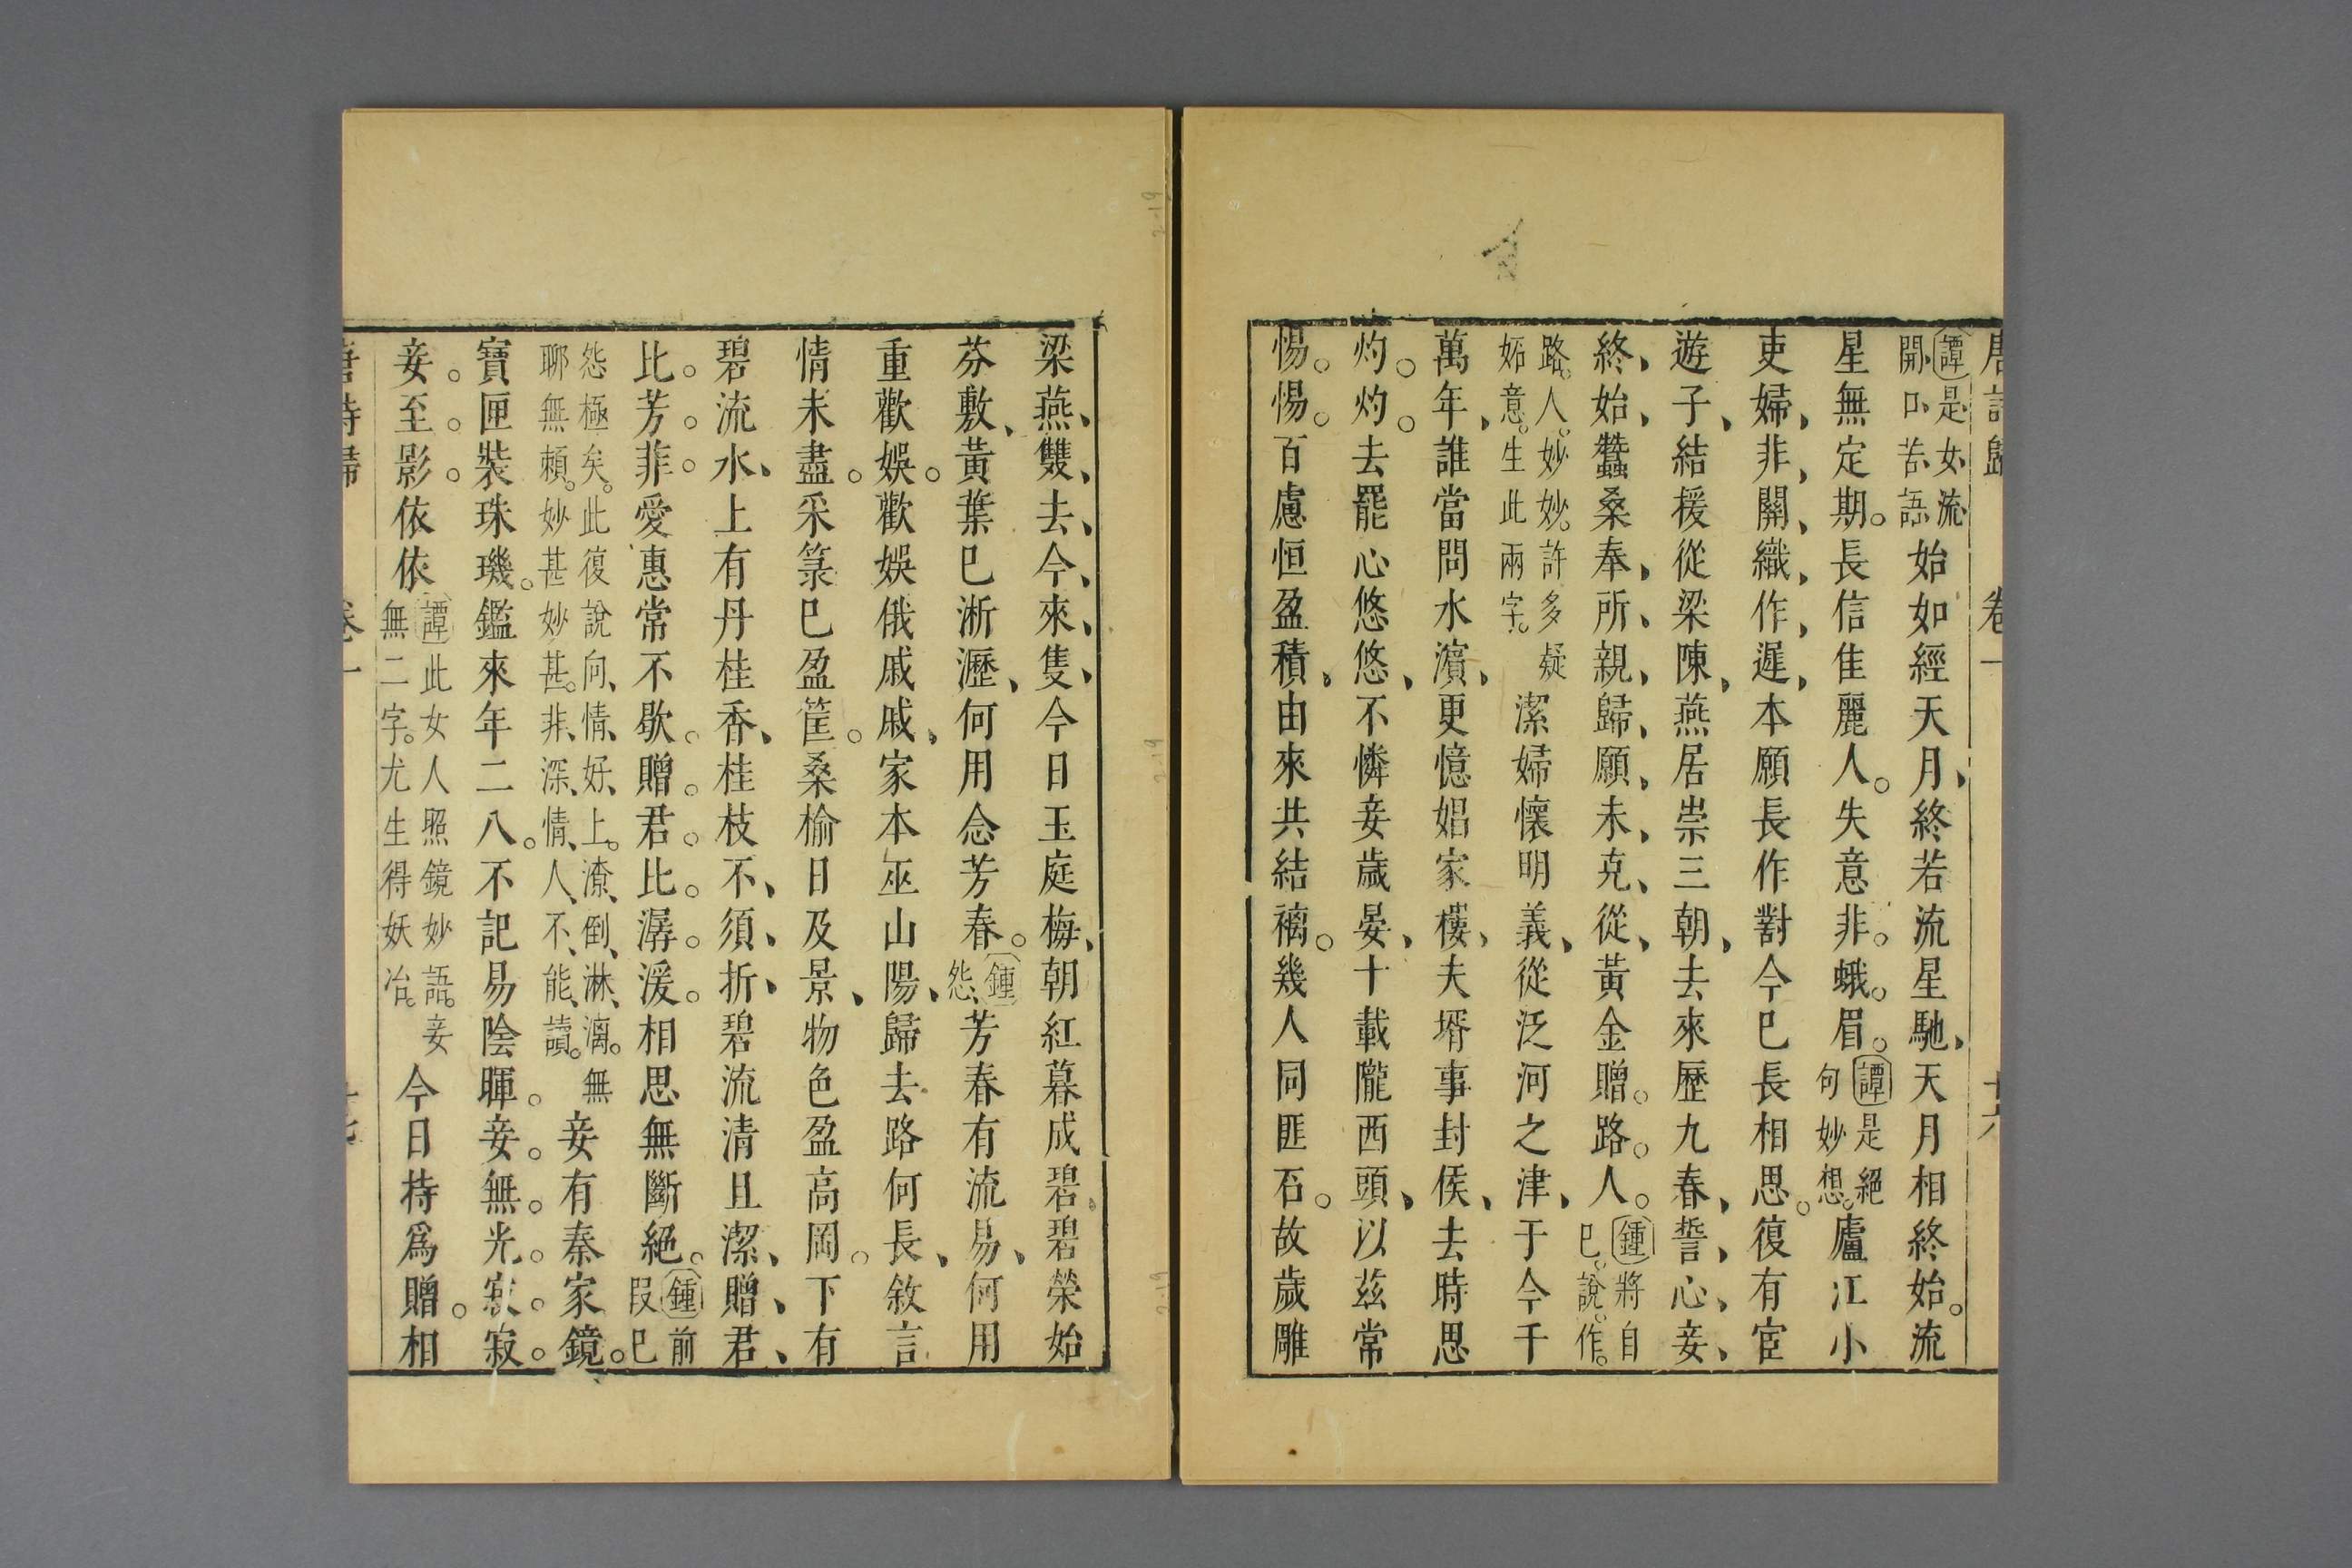 唐詩歸 卷一 十六
譚是女流開口苦語始如經天月終若流星馳天月相終始流
星無定期長信佳麗人失意非蛾眉譚是絕句妙想廬江小
吏婦非關織作遲本願長作對今巳長相思復有宦
遊子結援從梁陳燕居崇三朝去來歷九春誓心妾
終始蠶桑奉所親歸願未克從黃金贈路人鍾將自巳說作
路人妙妙許多疑妬意生此兩字潔婦懷明義從泛河之津于今千
萬年誰當問水濱更憶娼家樓夫壻事封侯去時思
灼灼去罷心悠悠不憐妾歲晏十載隴西頭以茲常
惕惕百慮恒盈積由來共結褵幾人同匪石故歲雕
梁燕雙去今來隻今日玉庭梅朝紅暮成碧碧榮始
芬敷黃葉巳淅瀝何用念芳春鍾怨芳春有流易何用
重歡娛歡娛俄戚戚家本巫山陽歸去路何長敘言
情未盡采菉巳盈筐桑榆日及景物色盈高岡下有
碧流水上有丹桂香桂枝不須折碧流清且潔贈君
比芳菲愛惠常不歇贈君比潺湲相思無斷絕鍾前段巳
怨極矣此復說向情好上潦倒淋漓無聊無賴妙甚妙甚非深情人不能讀妾有秦家鏡
寶匣裝珠璣鑑來年二八不記易陰暉妾無光寂寂
妾至影依依譚此女人照鏡妙語妾無二字尤生得妖冶今日持爲贈相
唐詩歸 卷一 十七